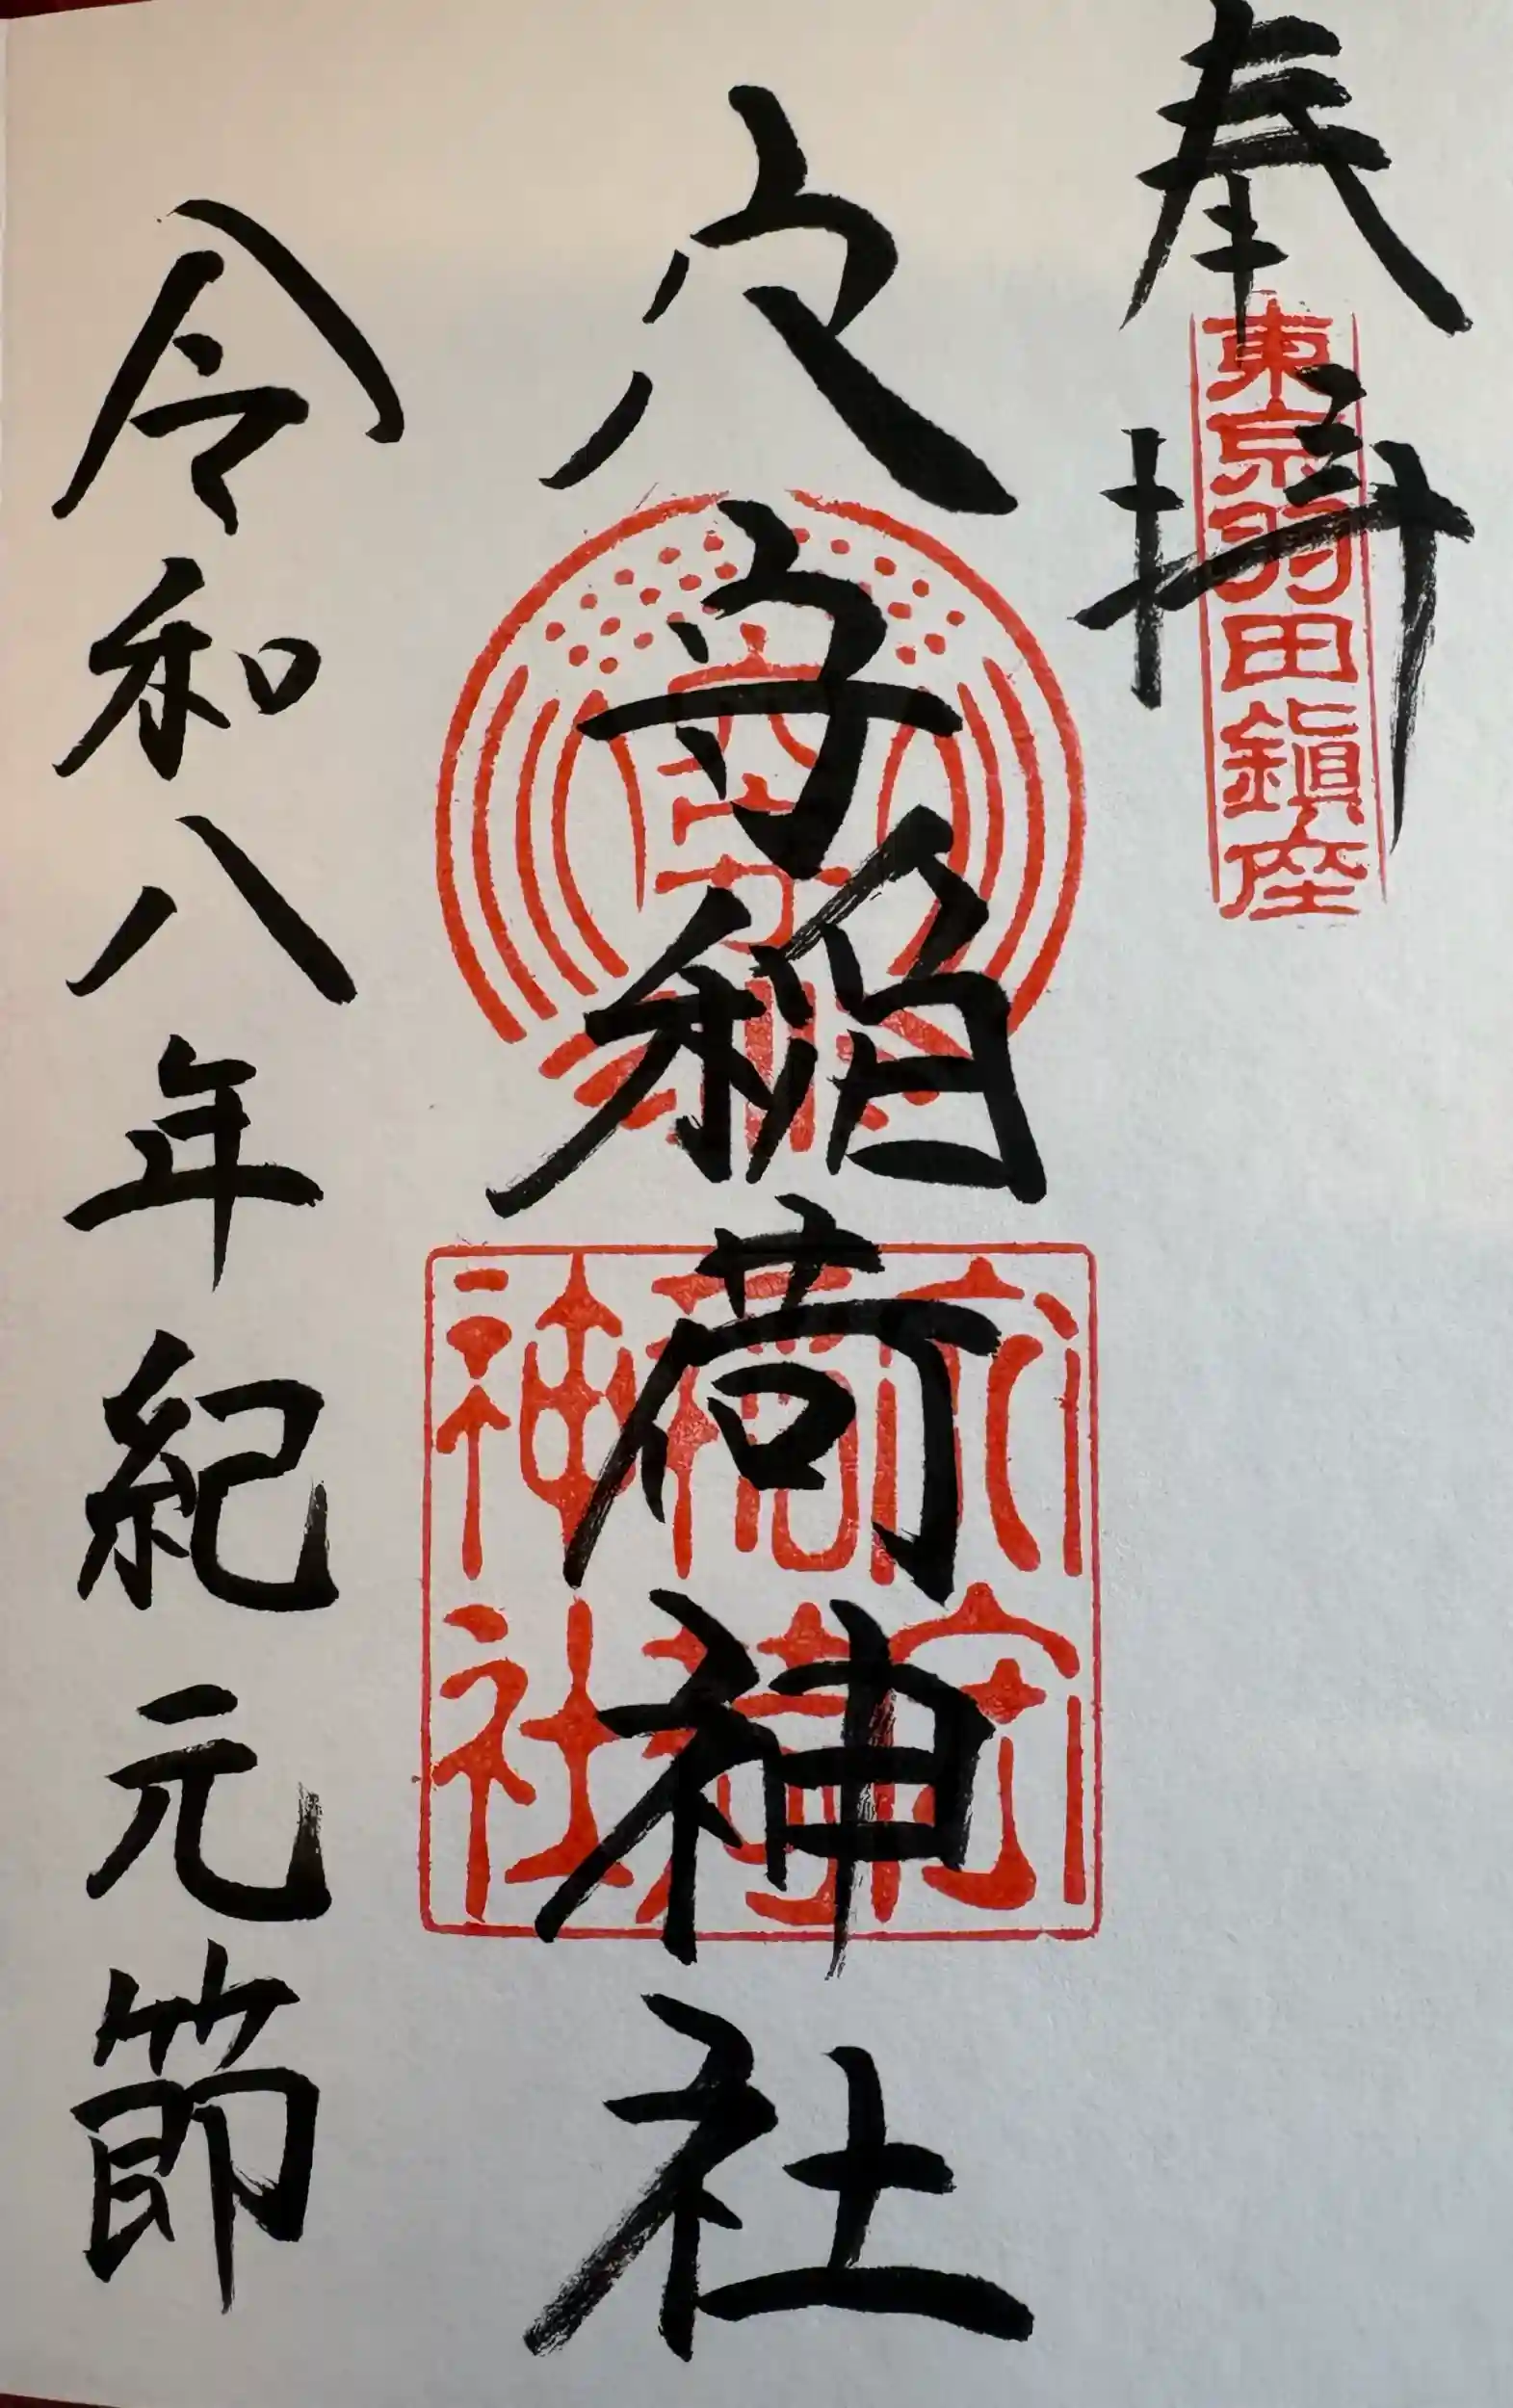 奉拝
東京羽田鎮座
穴守稲荷神社
穴守
稲荷
神社
令和八年紀元節